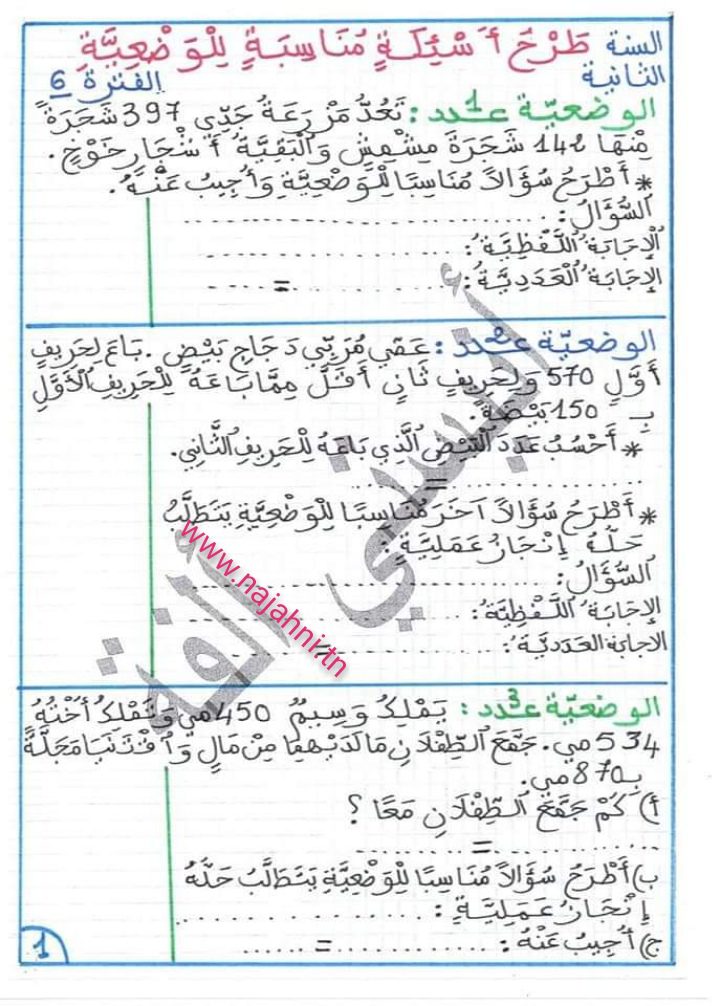 السنة الثانية
طَرْحُ أَسْئِلَةٍ مُنَاسِبَةٍ لِلْوَضْعِيَّةِ
الفترة 6
الوضعيّة عـ1ـدد : تَعُدُّ مَزْرَعَةُ جَدِّي 397 شَجَرَةً
مِنْهَا 142 شَجَرَةَ مِشْمِشٍ وَالْبَقِيَّةُ أَشْجَارُ خَوْخٍ.
* أَطْرَحُ سُؤَالاً مُنَاسِبًا لِلْوَضْعِيَّةِ وَأُجِيبُ عَنْهُ.
السُّؤَالُ : ..............................
الإِجَابَةُ اللَّفْظِيَّةُ : ..............................
الإِجَابَةُ الْعَدَدِيَّةُ : .................. = ............
الوضعيّة عـ2ـدد : عَمِّي مُرَبِّي دَجَاجِ بَيْضٍ . بَاعَ لِحَرِيفٍ
أَوَّلٍ 570 وَلِحَرِيفٍ ثَانٍ أَقَلَّ مِمَّا بَاعَهُ لِلْحَرِيفِ الْأَوَّلِ
بِـ 150 بَيْضَةً.
* أَحْسُبُ عَدَدَ الْبَيْضِ الَّذِي بَاعَهُ لِلْحَرِيفِ الثَّانِي.
.................. = ..................
* أَطْرَحُ سُؤَالاً آخَرَ مُنَاسِبًا لِلْوَضْعِيَّةِ يَتَطَلَّبُ
حَلُّهُ إِنْجَازَ عَمَلِيَّةٍ :
السُّؤَالُ : ..............................
الإِجَابَةُ اللَّفْظِيَّةُ : ..............................
الاجابة العدديّة : .................. = ............
الوضعيّة عـ3ـدد : يَمْلِكُ وَسِيمُ 450 مي وَتَمْلِكُ أُخْتُهُ
534 مي. جَمَّعَ الطِّفْلَانِ مَا لَدَيْهِمَا مِنْ مَالٍ وَاقْتَنَيَا مَجَلَّةً
بِـ 870 مي.
أ) كَمْ جَمَّعَ الطِّفْلَانِ مَعًا ؟
.................. = ..................
ب) أَطْرَحُ سُؤَالاً مُنَاسِبًا لِلْوَضْعِيَّةِ يَتَطَلَّبُ حَلُّهُ
إِنْجَازَ عَمَلِيَّةٍ : ..............................
ج) أُجِيبُ عَنْهُ : .................. = ............
1
www.najahni.tn